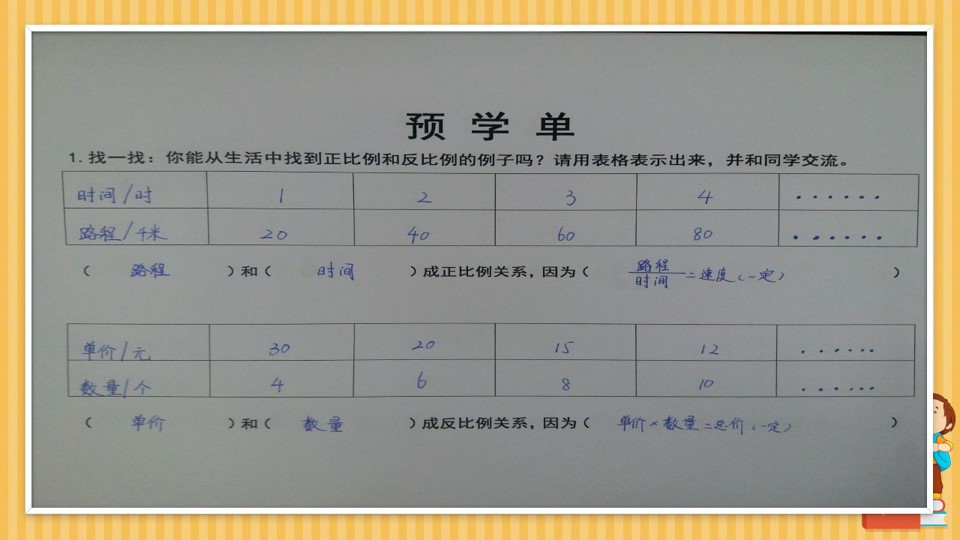 预 学 单
1. 找一找：你能从生活中找到正比例和反比例的例子吗？请用表格表示出来，并和同学交流。
时间/时 1 2 3 4 ······
路程/千米 20 40 60 80 ······
（ 路程 ）和（ 时间 ）成正比例关系，因为（ 路程/时间 =速度（一定） ）
单价/元 30 20 15 12 ······
数量/个 4 6 8 10 ······
（ 单价 ）和（ 数量 ）成反比例关系，因为（ 单价×数量=总价（一定） ）